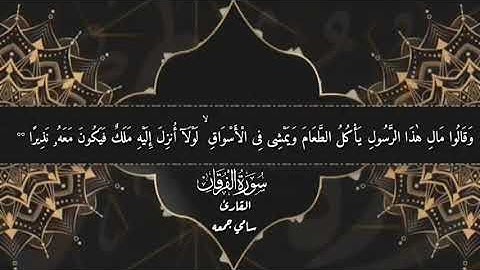 وَقَالُوا مَالِ هَٰذَا الرَّسُولِ يَأْكُلُ الطَّعَامَ وَيَمْشِى فِى الْأَسْوَاقِ ۙ لَوْلَآ أُنزِلَ إِلَيْهِ مَلَكٌ فَيَكُونَ مَعَهُۥ نَذِيرًا
سورة الفرقان
القارئ
سامي جمعه